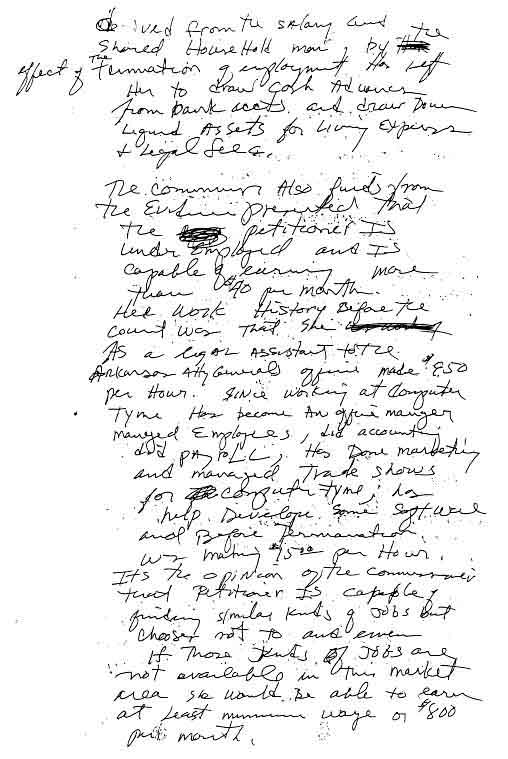 Derived from the salary and
Shared House Hold mon, by the
effect of the Termination of employment Has left
Her to draw Cash Advances
from bank accts. and draw Down
Liquid Assets for Living Expenses
& Legal Fees.
The Commissioner Also finds from
the Evidence presented that
the petitioner Is
under Employed and Is
capable of earning more
than $90 per month.
Her work History Before the
Court was that she
As a legal Assistant to the
Arkansas Atty Generals office made $9.50
per Hour. Since working at Computer
Tyme Has become An office manager
managed Employees, did accounting
did PAYROLL, Has Done marketing
and managed Trade Shows
for Computer Tyme; has
help Develope Some Software
and Before Termination
was making $15.00 per Hour.
Its the opinion of the Commissioner
that Petitioner Is capable of
finding similar kinds of Jobs but
chooses not to and even
If Those Kinds of Jobs are
not available in this market
area she would Be able to earn
at least minimum wage or $800
per month.